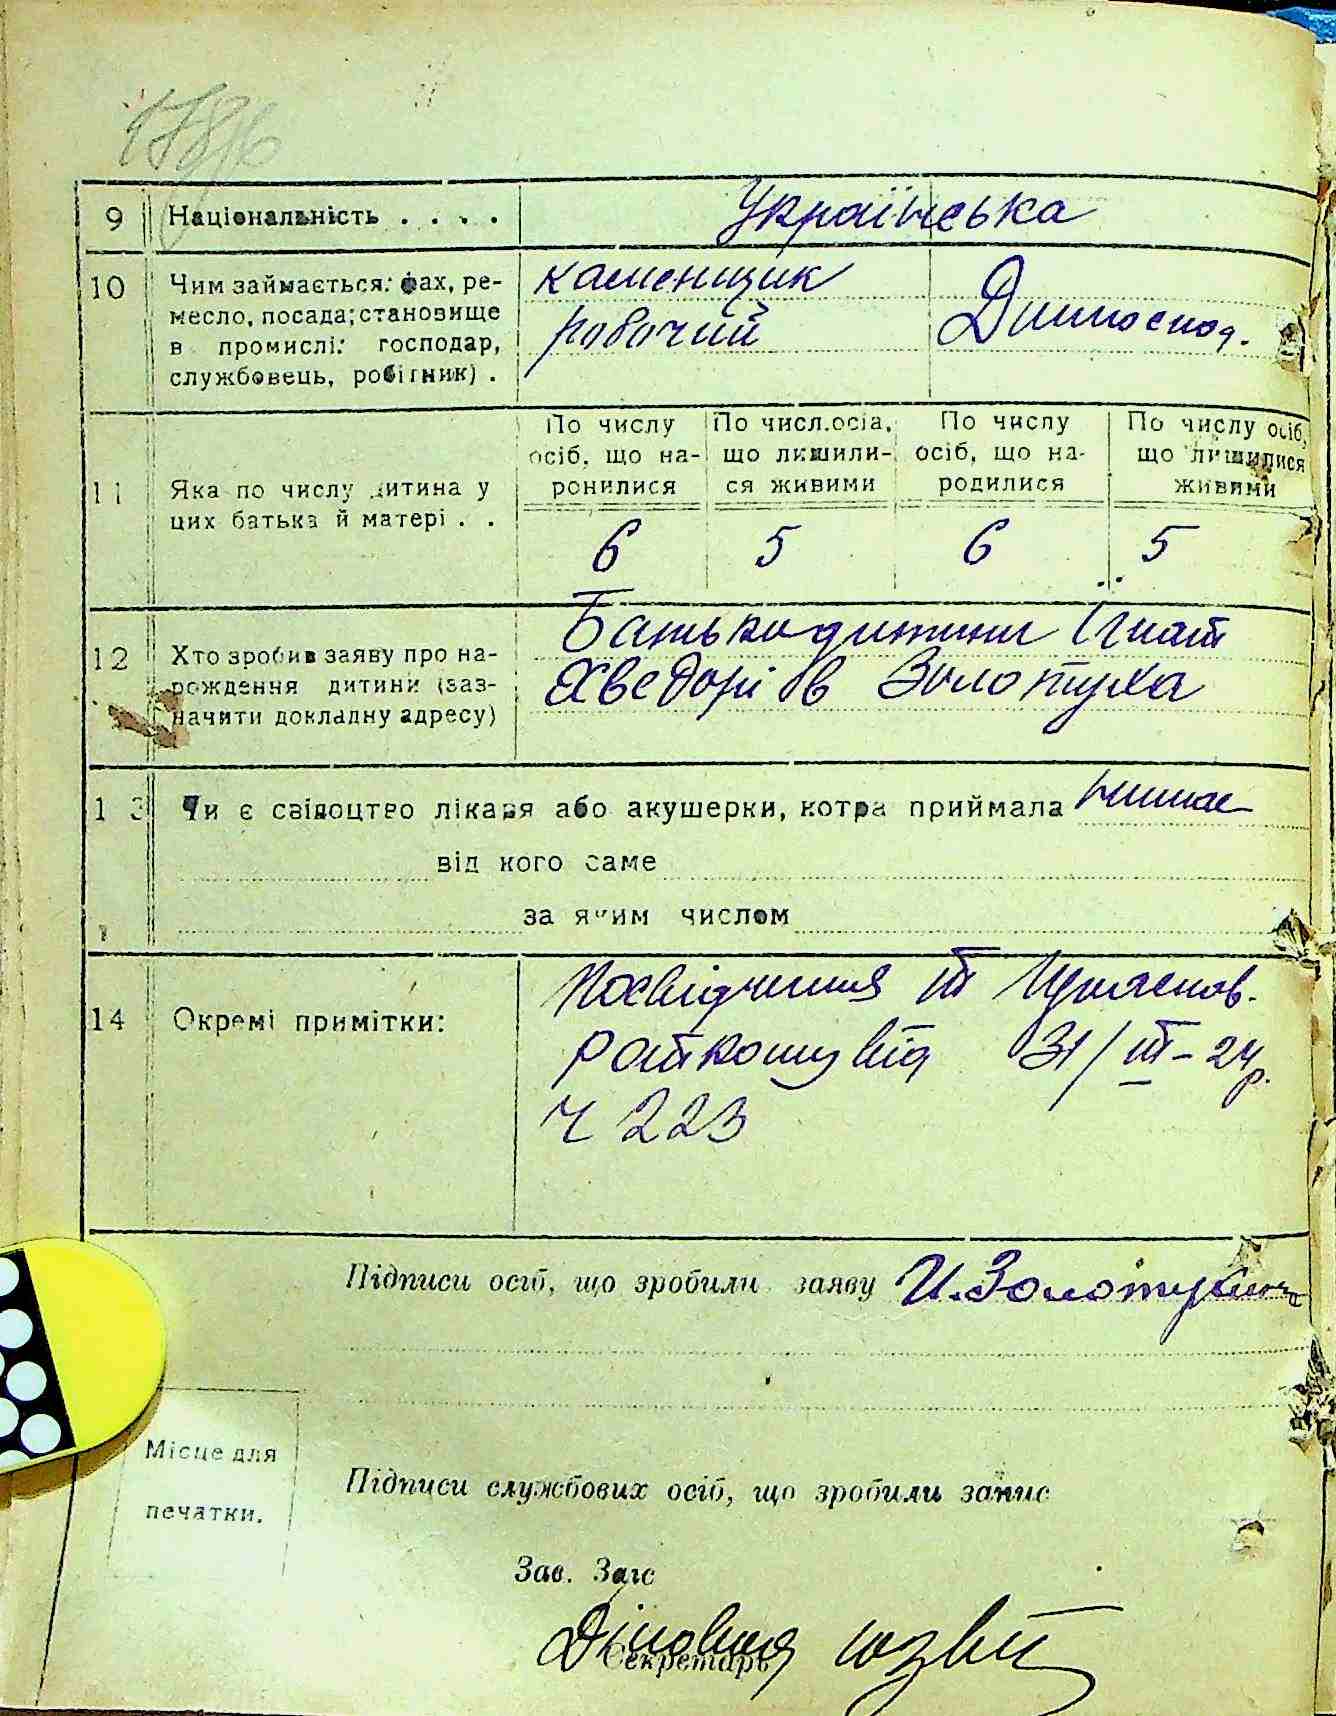 9 Національність . . . .
Українська
10 Чим займається: фах, ре-
месло, посада; становище
в промислі: господар,
службовець, робітник) .
каменщик
робочий
Домогоспод.
11 Яка по числу дитина у
цих батька й матері . .
По числу
осіб, що на-
ронилися
По числ. осіа,
що лишили-
ся живими
По числу
осіб, що на-
родилися
По числу осіб,
що лишилися
живими
6 5 6 5
12 Хто зробив заяву про на-
рождення дитини (заз-
начити докладну адресу)
Батько дитини Ігнат
Хведорів Золотуха
13 Чи є свідоцтво лікаря або акушерки, котра приймала немає
від кого саме
за яким числом
14 Окремі примітки:
Посвідчення III
від 31/III-24р.
ч 223
Підписи осіб, що зробили заяву И. Золотухин
Місце для
печатки.
Підписи службових осіб, що зробили запис
Зав. Загс
Секретарь